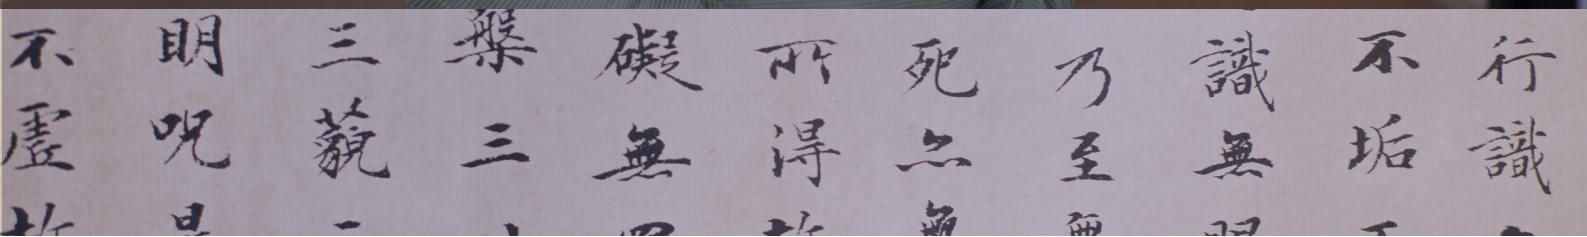 行識
不垢
識無
乃至
死亦無
所得故
礙無
槃三
三藐三
明呪是
不虛故